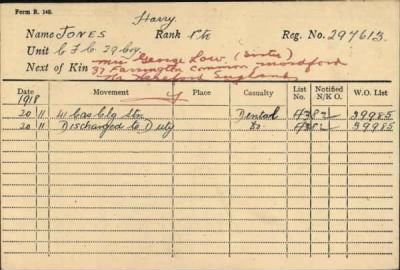 Form R. 140.
Harry
Name JONES Rank Pte Reg. No. 297613
Unit C F C 29 Coy
Next of Kin Mrs George Low. (Sister)
37 Farrington Common Mordford
Nr Hereford England
Date Movement Place Casualty List No. Notified N/K O. W.O. List
1918
20 11 41 Cas Clg Stn. Dental A382 39985
20 11 Discharged to Duty Do A382 39985